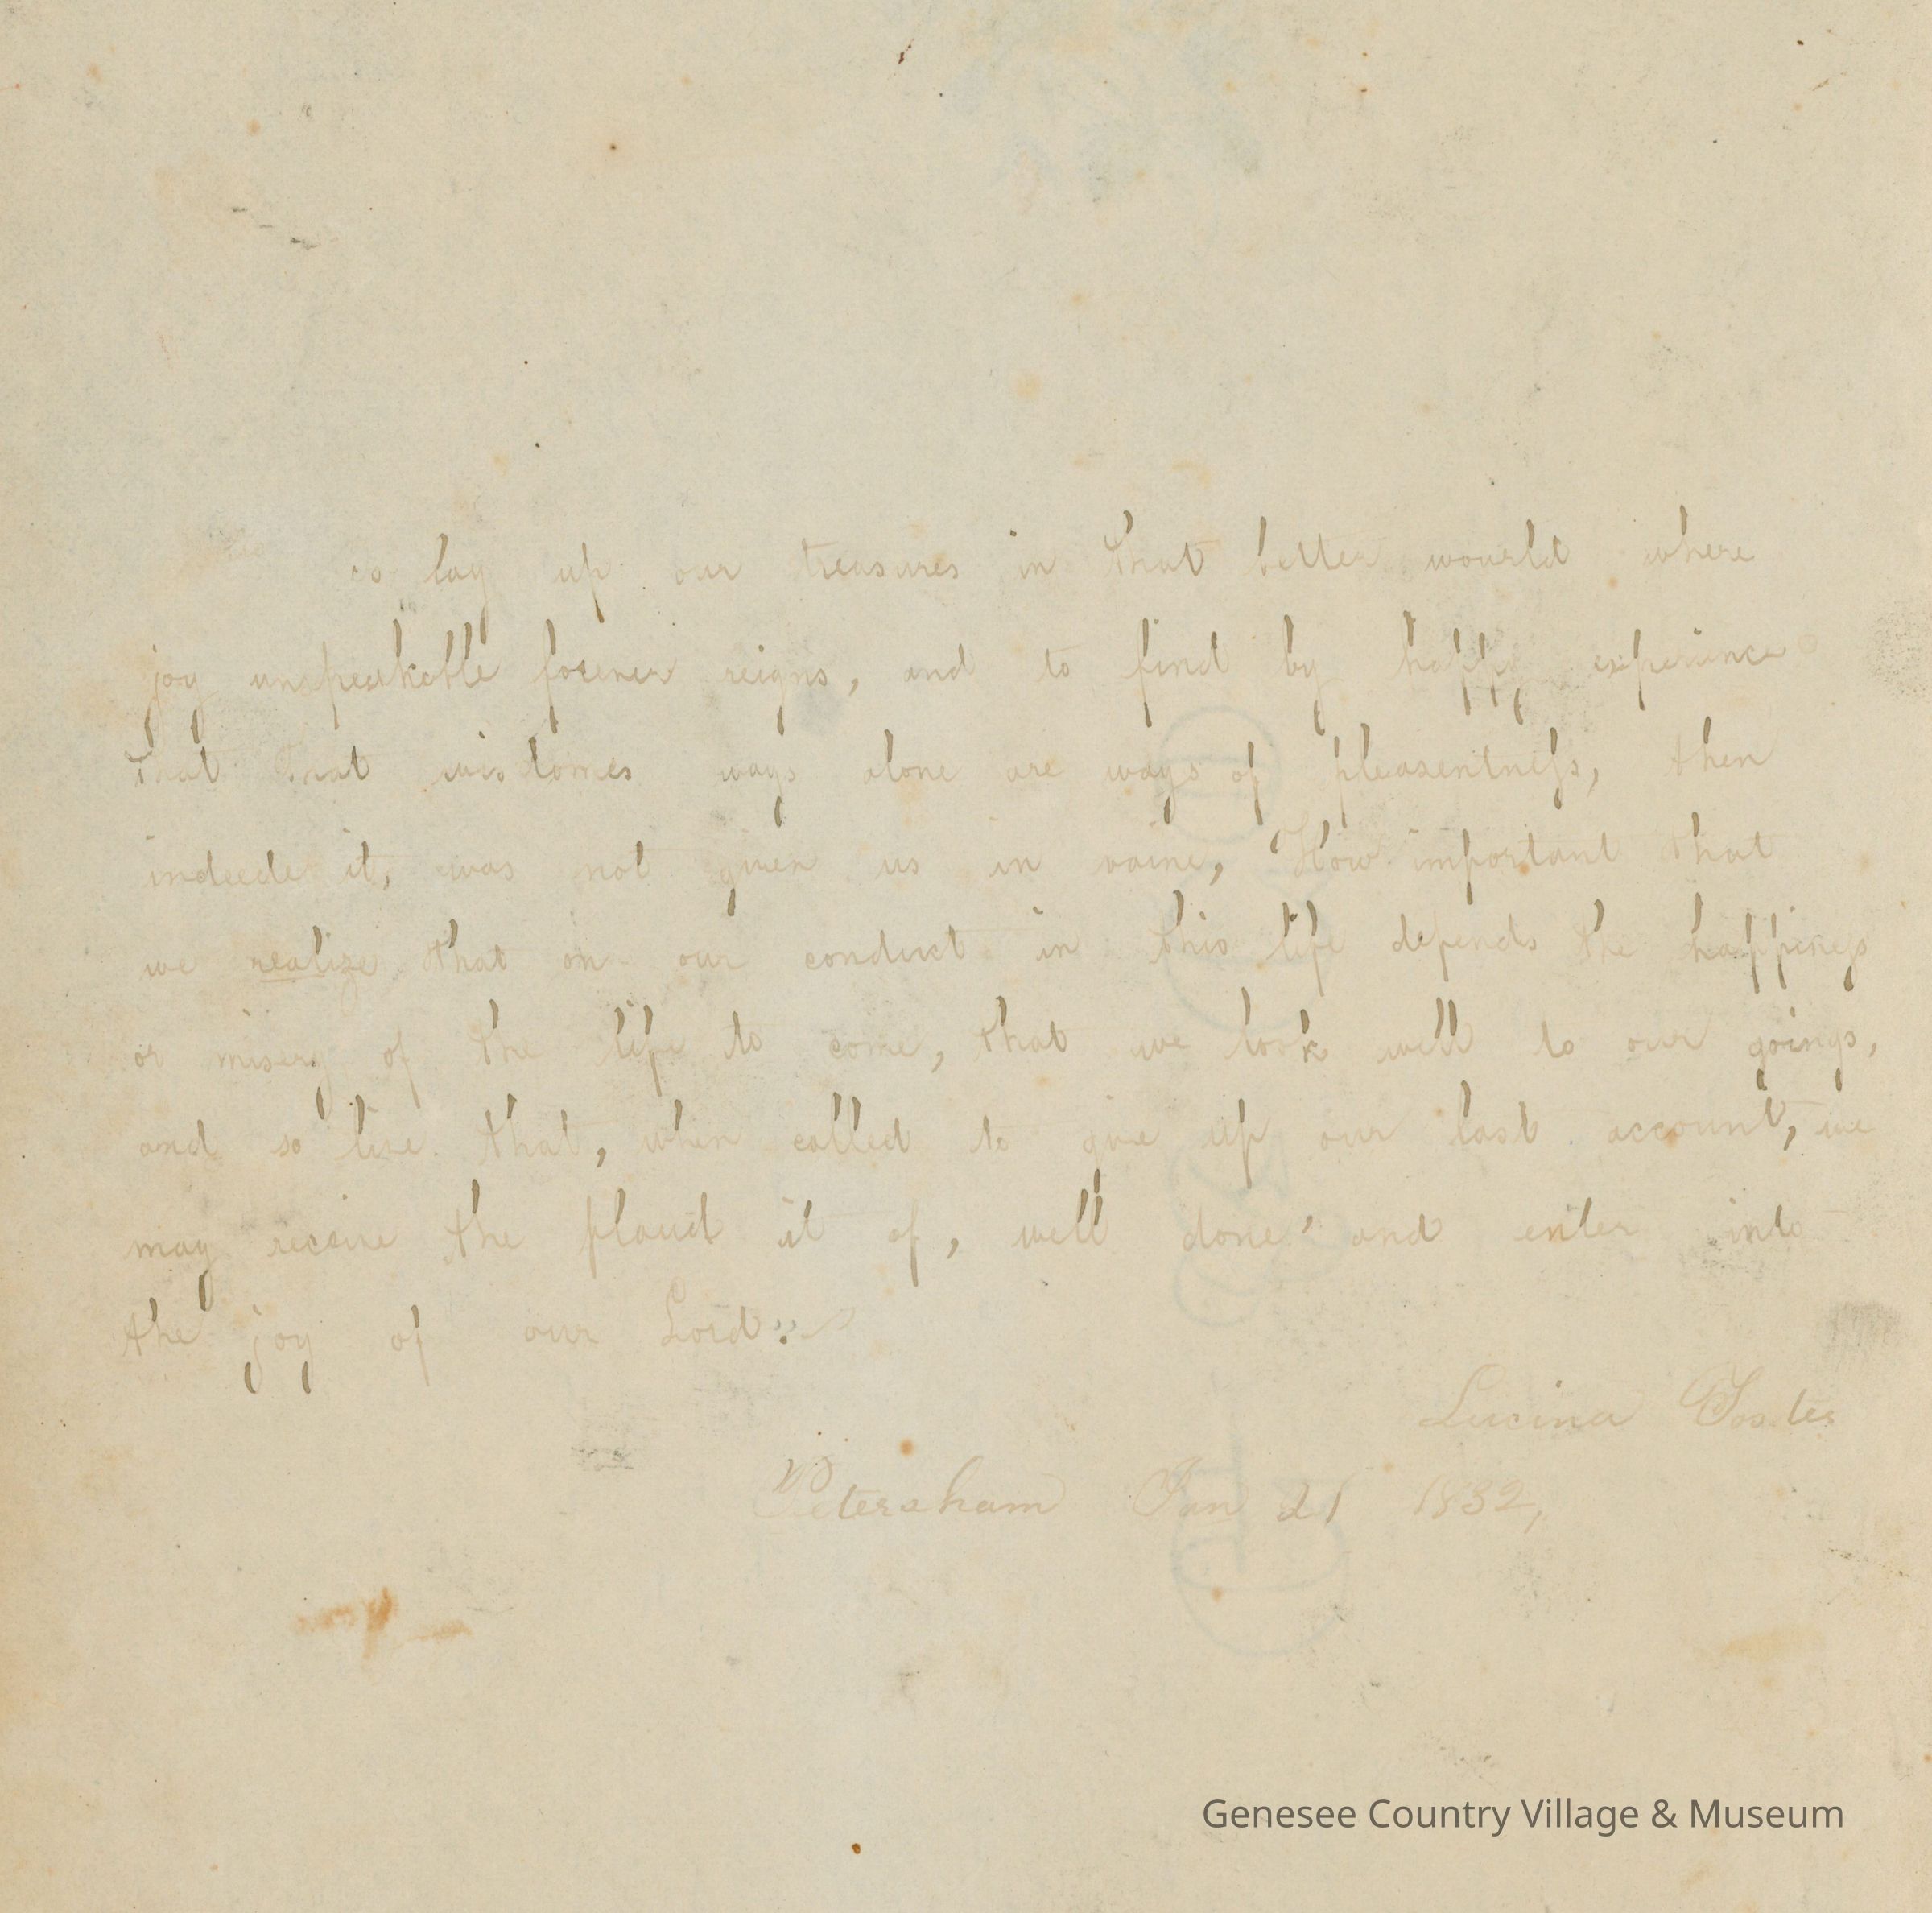 lay up our treasures in that better wourld where
joy unspeakable forever reigns, and to find by happy experince
that that wisdomes ways alone are ways of pleasentness, then
indeede it, was not given us in vaine, How important that
we realize that on our conduct in this life depends the happiness
or misery of the life to come, that we look well to our goings,
and so live that, when called to give up our last account, we
may receive the plaud it of, well done" and enter into
the joy of our Lord:
Lucina
Petersham Jan 21 1832,
Genesee Country Village & Museum